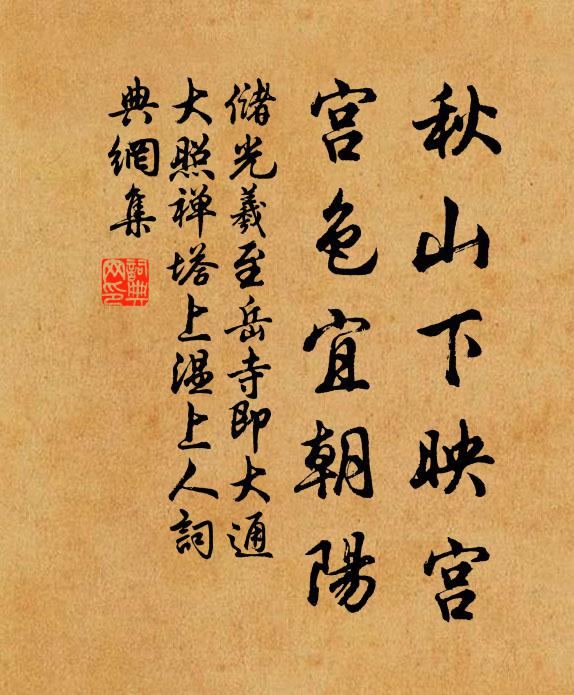 秋山下映宫
宫色宜朝陽
儲光羲至岳寺即大通
大照禅塔上温上人詞
典網集
詞典网印